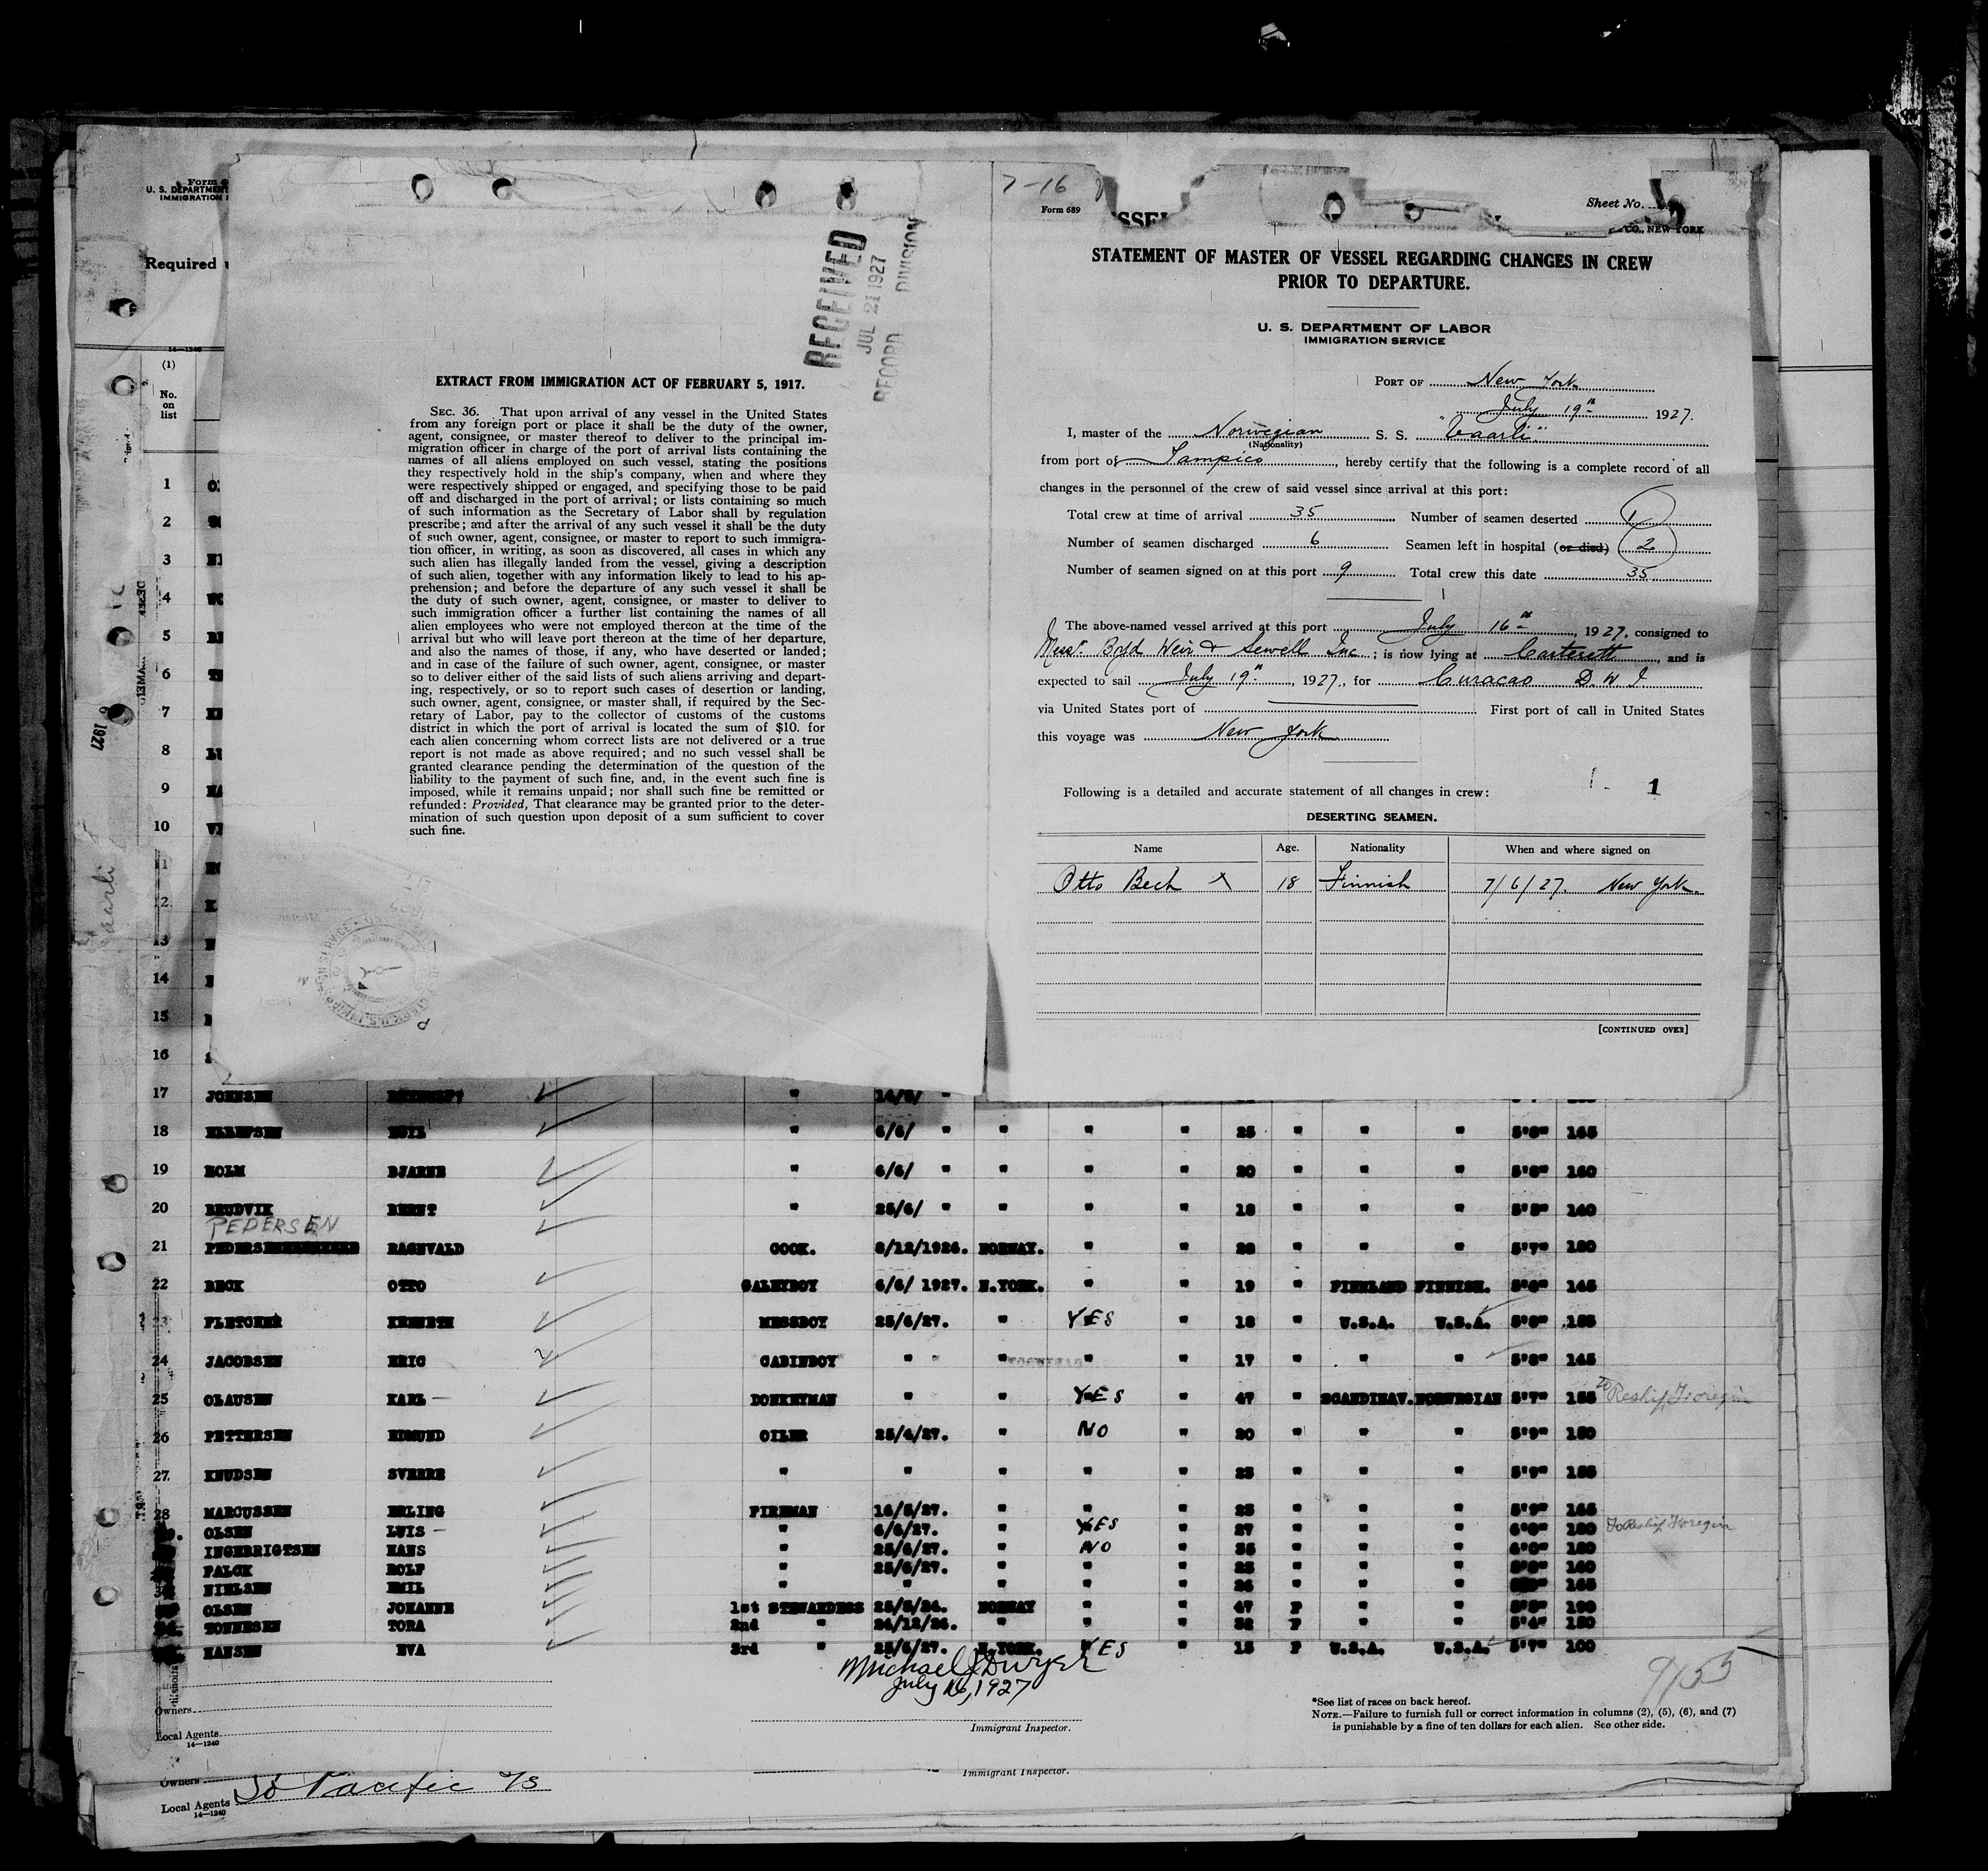 Form
U. S. DEPARTMENT
IMMIGRATION
Required
14—1240
(1)
No.
on
list
RECEIVED
JUL 21 1927
RECORD DIVISION
EXTRACT FROM IMMIGRATION ACT OF FEBRUARY 5, 1917.
SEC. 36. That upon arrival of any vessel in the United States
from any foreign port or place it shall be the duty of the owner,
agent, consignee, or master thereof to deliver to the principal im-
migration officer in charge of the port of arrival lists containing the
names of all aliens employed on such vessel, stating the positions
they respectively hold in the ship's company, when and where they
were respectively shipped or engaged, and specifying those to be paid
off and discharged in the port of arrival; or lists containing so much
of such information as the Secretary of Labor shall by regulation
prescribe; and after the arrival of any such vessel it shall be the duty
of such owner, agent, consignee, or master to report to such immigra-
tion officer, in writing, as soon as discovered, all cases in which any
such alien has illegally landed from the vessel, giving a description
of such alien, together with any information likely to lead to his ap-
prehension; and before the departure of any such vessel it shall be
the duty of such owner, agent, consignee, or master to deliver to
such immigration officer a further list containing the names of all
alien employees who were not employed thereon at the time of the
arrival but who will leave port thereon at the time of her departure,
and also the names of those, if any, who have deserted or landed;
and in case of the failure of such owner, agent, consignee, or master
so to deliver either of the said lists of such aliens arriving and depart-
ing, respectively, or so to report such cases of desertion or landing,
such owner, agent, consignee, or master shall, if required by the Sec-
retary of Labor, pay to the collector of customs of the customs
district in which the port of arrival is located the sum of $10. for
each alien concerning whom correct lists are not delivered or a true
report is not made as above required; and no such vessel shall be
granted clearance pending the determination of the question of the
liability to the payment of such fine, and, in the event such fine is
imposed, while it remains unpaid; nor shall such fine be remitted or
refunded: Provided, That clearance may be granted prior to the deter-
mination of such question upon deposit of a sum sufficient to cover
such fine.
7-16
Form 689
Sheet No.
CO., NEW YORK
STATEMENT OF MASTER OF VESSEL REGARDING CHANGES IN CREW
PRIOR TO DEPARTURE.
U. S. DEPARTMENT OF LABOR
IMMIGRATION SERVICE
PORT OF New York
July 19th 1927.
I, master of the Norwegian S. S. "Vaarli"
(Nationality)
from port of Tampico, hereby certify that the following is a complete record of all
changes in the personnel of the crew of said vessel since arrival at this port:
Total crew at time of arrival 35 Number of seamen deserted 1
Number of seamen discharged 6 Seamen left in hospital (or died) 2
Number of seamen signed on at this port 9 Total crew this date 35
The above-named vessel arrived at this port July 16th, 1927, consigned to
Messr. Boyd Weir & Sewell Inc; is now lying at Carterett, and is
expected to sail July 19th, 1927, for Curacao D. W. I.
via United States port of First port of call in United States
this voyage was New York
1
Following is a detailed and accurate statement of all changes in crew:
DESERTING SEAMEN.
Name Age. Nationality When and where signed on
Otto Beck X 18 Finnish 7/6/27. New York
[CONTINUED OVER]
1
2
3
4
5
6
7
8
9
10
11
12
13
14
15
16
17 JOHNSEN " 14/6/ "
18 ELLEFSEN " 6/6/ " " " " 25 " " " 5'8" 165
19 HOLM BJARNE " 6/6/ " " " " 20 " " " 5'8" 160
20 BRUDVIK BERNT " 25/6/ " " " " 18 " " " 5'8" 140
PEDERSEN
21 RAGNVALD COOK. 8/12/1926. NORWAY. " " 28 " " " 5'7" 180
22 BECK OTTO GALEYBOY 6/6/ 1927. N.YORK. " " 19 " FINNLAND FINNISH. 5'6" 145
23 FLETCHER KENNETH MESSBOY 25/6/27. " YES " 18 " U.S.A. U.S.A. 5'8" 155
24 JACOBSEN ERIC CABINBOY " " " " 17 " " " 5'8" 145
25 OLAUSEN KARL — DONKEYMAN " " YES " 47 " SCANDINAV. NORWEGIAN 5'7" 155 To Reship Foregin
26 PETTERSEN EDMUND OILER 25/4/27. " NO " 20 " " " 5'9" 150
27. KNUDSEN SVERRE " " " " " 23 " " " 5'9" 155
28 MARCUSSEN ERLING FIREMAN 16/5/27. " " " 23 " " " 5'9" 165
OLSEN LUIS — " 6/6/27. " YES " 27 " " " 6'0" 180 To Reship Foregin
INGEBRIGTSEN HANS " 25/6/27. " NO " 35 " " " 6'0" 180
FALCK ROLF " 25/6/27. " " " 23 " " " 160
NIELSEN EMIL " " " " " 26 " " " 165
OLSEN JOHANNE 1st STEWARDESS 25/5/26. NORWAY " " 47 F " " 190
TONNESEN TORA 2nd " 24/12/26. " " " F " " 5'4" 150
HANSEN EVA 3rd " 25/6/27. N.YORK. YES " 15 F U.S.A. U.S.A. 5'7" 100
Michael J Dwyer
July 16, 1927
Immigrant Inspector.
Owners
Local Agents
14—1240
*See list of races on back hereof.
NOTE.—Failure to furnish full or correct information in columns (2), (5), (6), and (7)
is punishable by a fine of ten dollars for each alien. See other side.
Owners
Local Agents So Pacific S/S
14—1240
Immigrant Inspector.